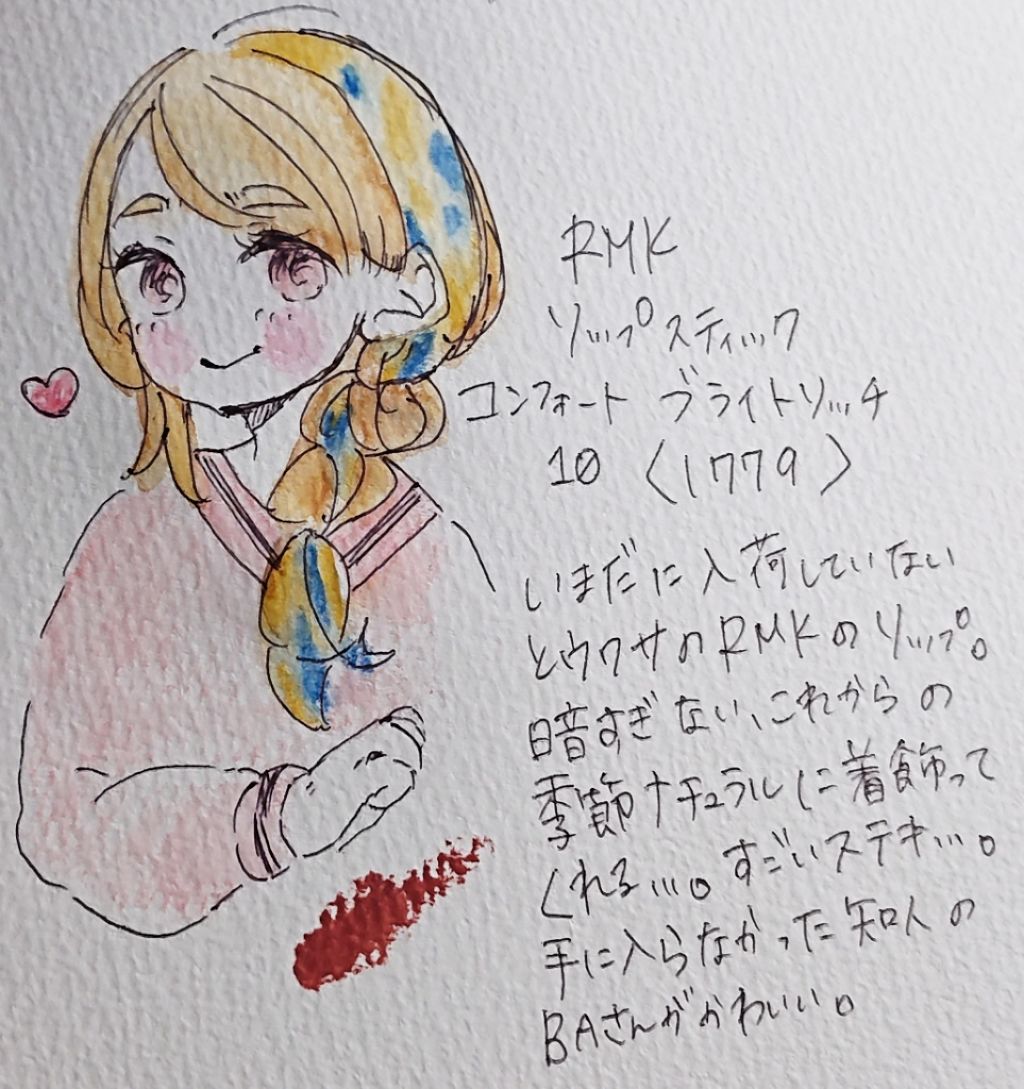 RMK
リップスティック
コンフォート ブライトリッチ
10 〈1779〉
いまだに入荷していない
とウワサのRMKのリップ。
暗すぎない、これからの
季節ナチュラルに着飾って
くれる…。すごいステキ…。
手に入らなかった知人の
BAさんがかわいい。